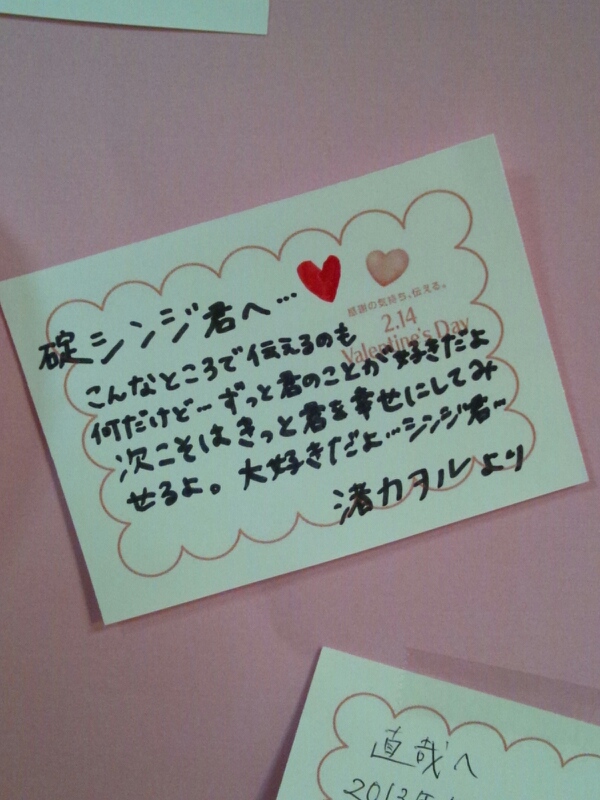 碇シンジ君へ…
感謝の気持ち、伝える。
2.14
Valentine's Day
こんなところで伝えるのも
何だけど…ずっと君のことが好きだよ
次こそはきっと君を幸せにしてみ
せるよ。大好きだよ…シンジ君…
渚カヲルより
直哉へ